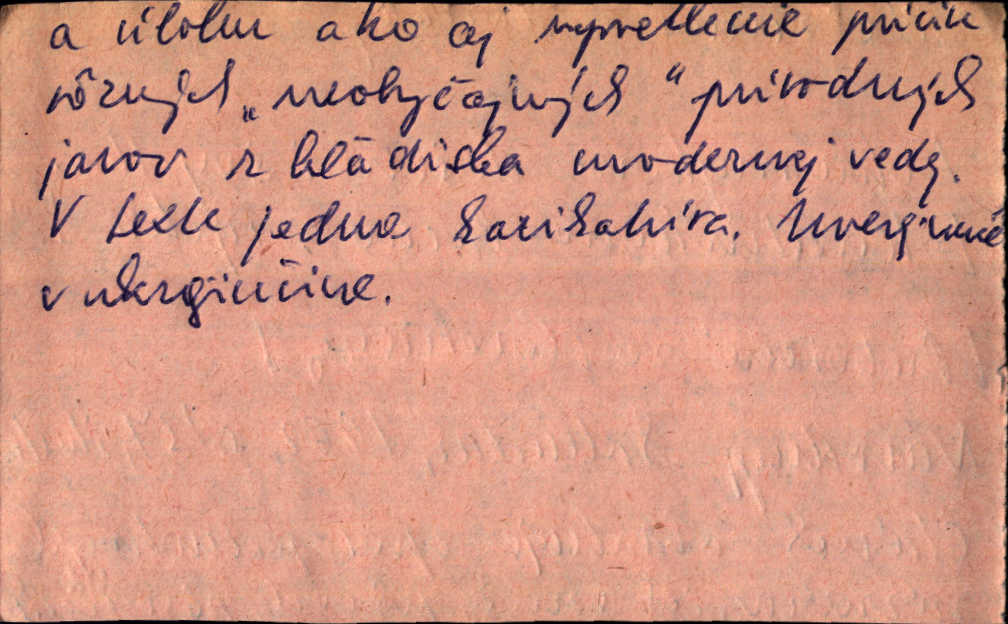 a úlohu ako aj vysvetlenie príčin
rôznych „neobyčajných“ prírodných
javov z hľadiska modernej vedy.
V texte jedna karikatúra. Uverejnené
v ukrajinčine.